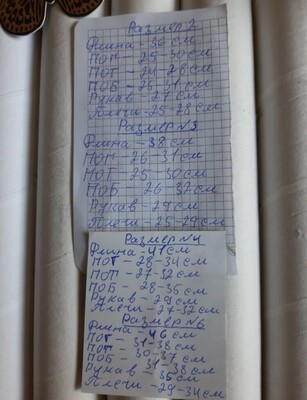 Размер 2
Длина - 36 см
ПОГ - 25-30 см
ПОТ - 24-28 см
ПОБ - 26-31 см
Рукав - 27 см
Плечи - 25-28 см
Размер №3
Длина - 38 см
ПОГ - 26-31 см
ПОТ - 25-30 см
ПОБ - 26-32 см
Рукав - 29 см
Плечи - 25-29 см
Размер №4
Длина - 41 см
ПОГ - 28-34 см
ПОТ - 27-32 см
ПОБ - 28-35 см
Рукав - 29 см
Плечи - 27-32 см
Размер №6
Длина - 46 см
ПОГ - 31-38 см
ПОТ - 30-37 см
ПОБ - 31-38 см
Рукав - 35 см
Плечи - 29-34 см